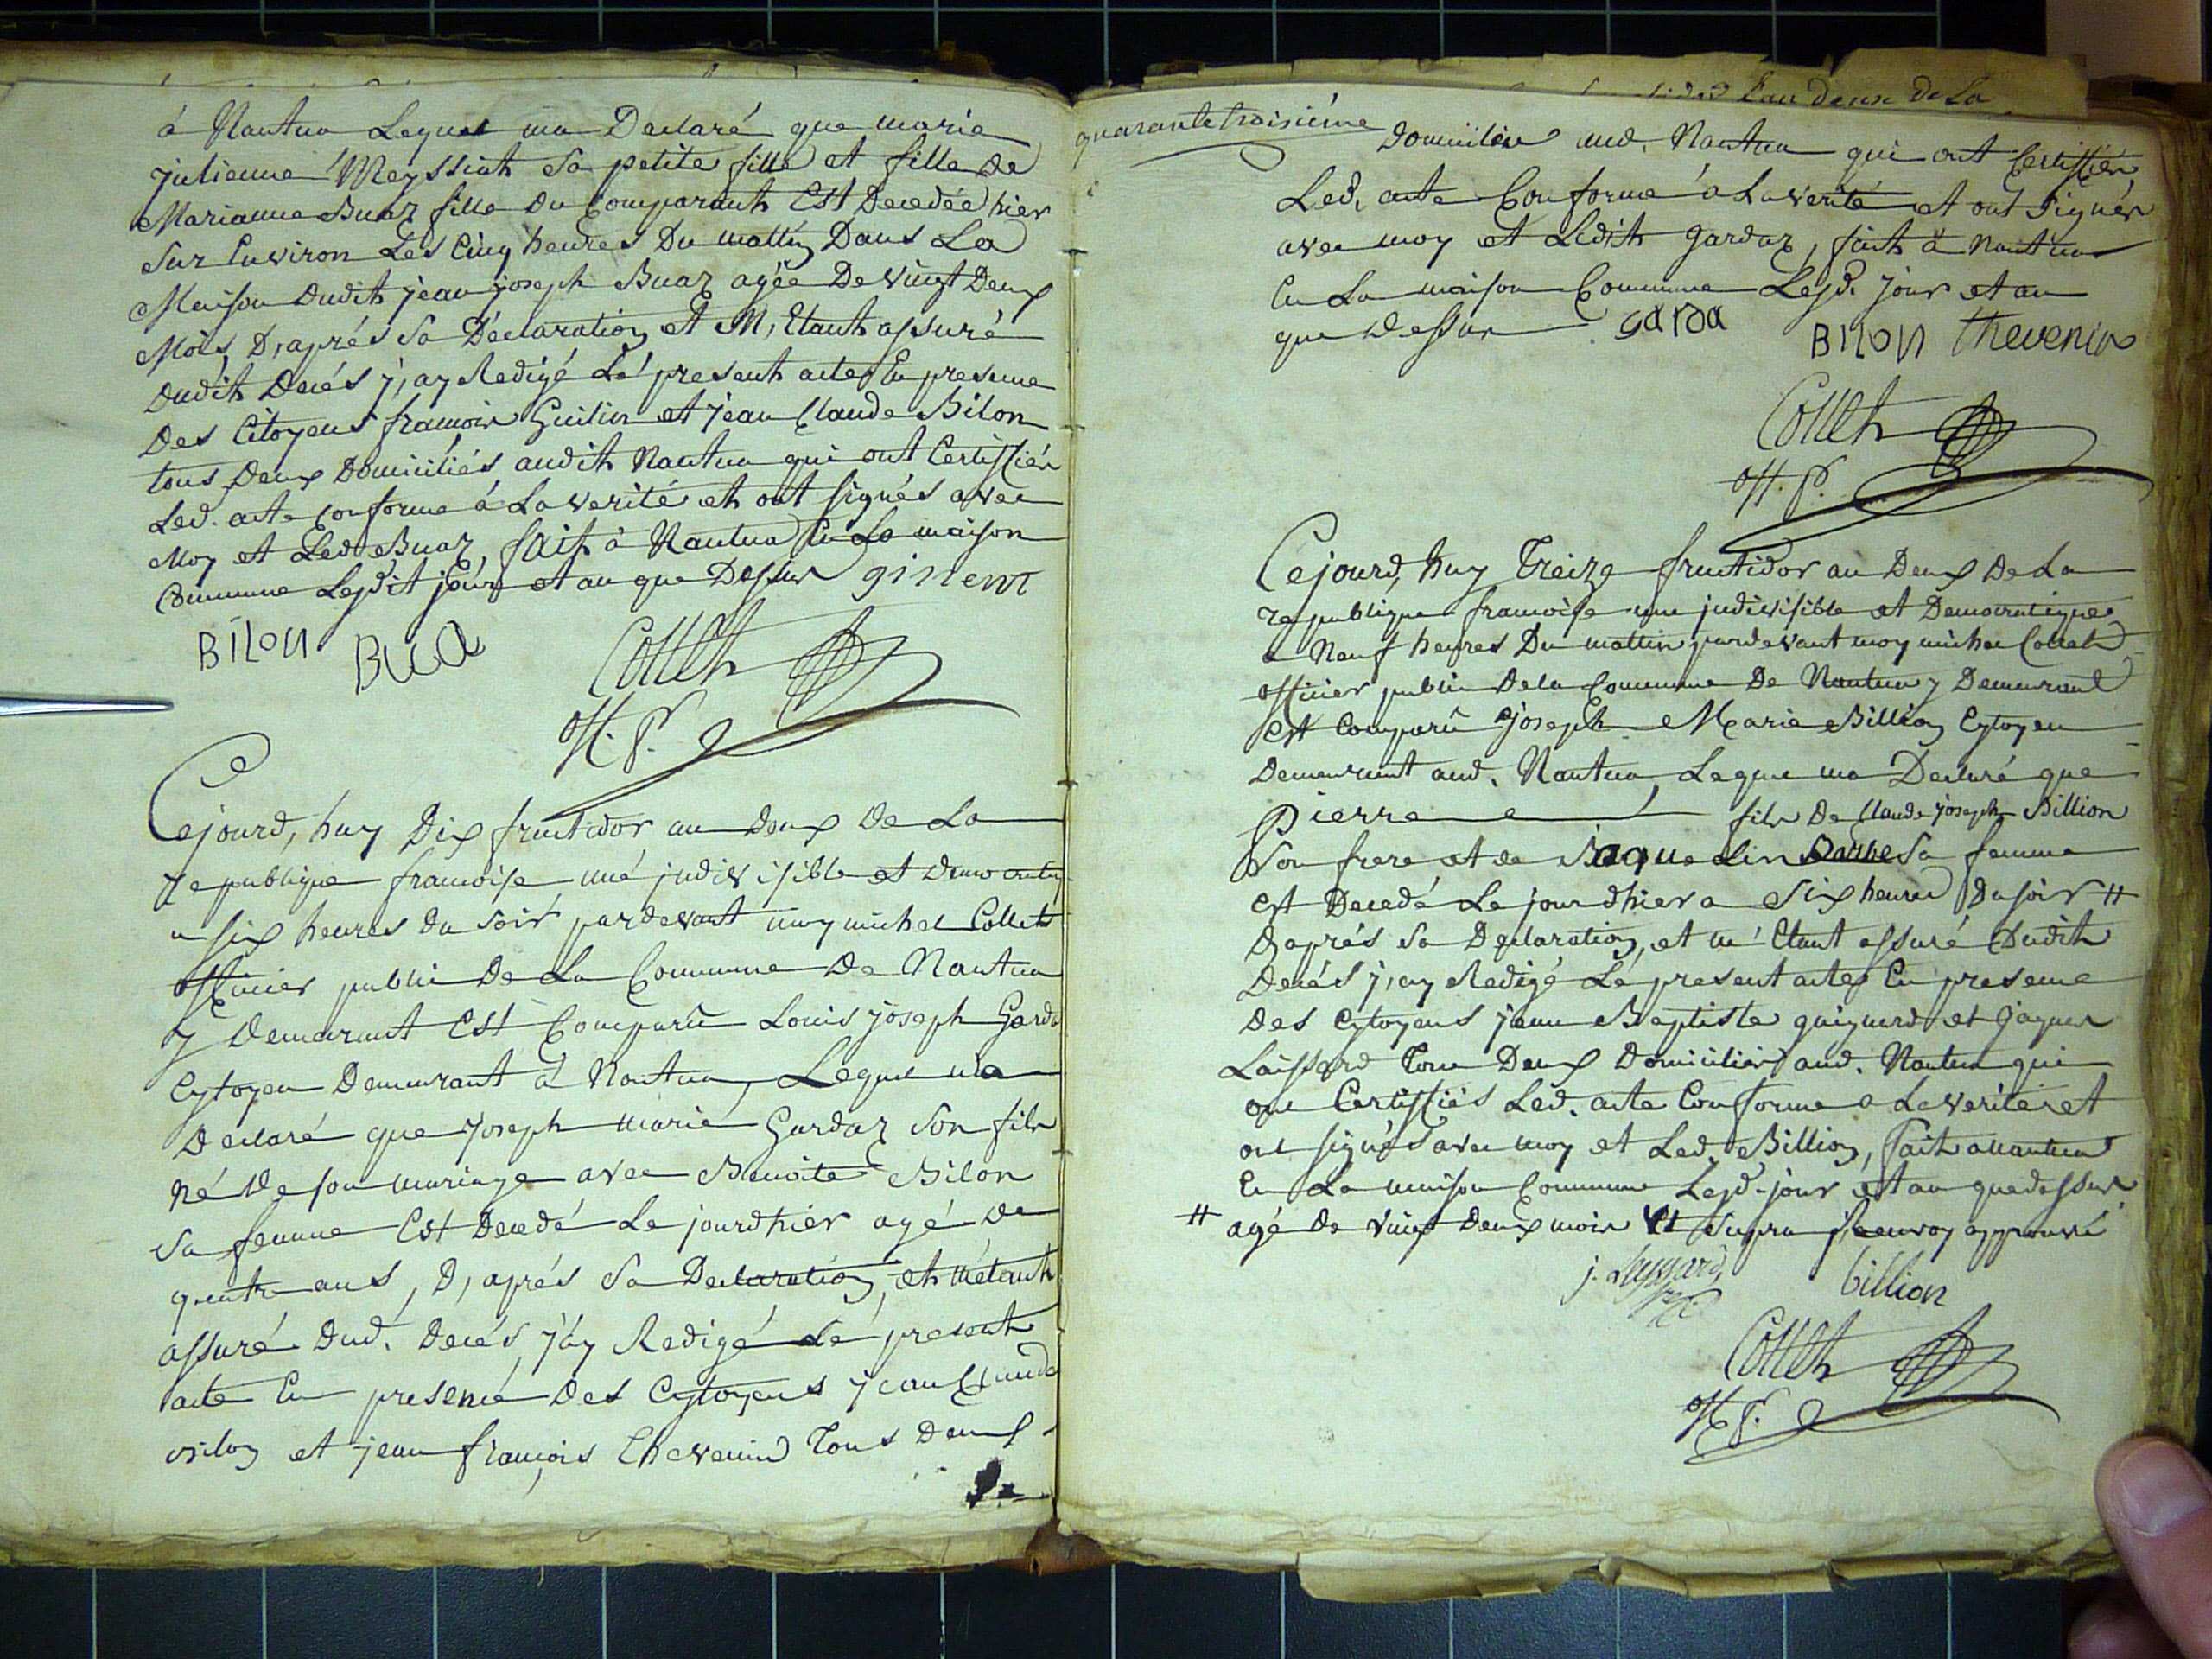 à Nantua Lequel ma Declaré que marie
julienne Meyssiat Sa petite fille et fille de
Marianne Buaz fille du Comparant Est Decedée hier
Sur Environ Les Cinq heures Du mattin Dans La
Maison dudit jean joseph Buaz agée De vingt Deux
Mois D,aprés Sa Déclaration et M,Etant assuré
dudit Decés j,ay Redigé Le present acte En presence
Des Citoyens francois et jean Claude Bilon
tous Deux Domiciliés audit Nantua qui ont Certiffiés
Led. acte conforme à La verité et ont signés avec
Moy et Led. Buaz, fait à Nantua En La maison
Commune Lesdit jour et an que Dessus ginent
BiLon Bua Colleth
off. p.
Cejourd,huy Dix fructidor an deux De La
republique francoise une indivisible et democratiq
a six heures du soir pardevant moy michel Colleth
officier public De La Commune De Nantua
y Demeurant Est Comparû Louis joseph Garda
Cytoyen Demeurant à Nantua, Lequel ma
Declaré que joseph marie Gardaz Son fils
né De son mariage avec Benoite Bilon
Sa femme Est Decedé Le jourdhier agé de
quatre ans, D,aprés Sa Declaration, et métant
assuré Dud. Decés, j'ay Redigé Le present
acte En presence Des Cytoyens jean Claude
Bilon et jean françois Thevenin Tous deux
quarantetroisiéme
Domiciliés aud. Nantua qui ont Certiffiés
Led. acte Conforme à La verité et ont Signés
avec moy et Ledit gardaz, fait à Nantua
En La maison Commune Lesd. jour et an
que Dessus Garda BiLon thevenin
Colleth
off. p.
Cejourd,huy Treize fructidor an Deux De La
republique francoise une indivisible et Democratique
a Neuf heures Du mattin pardevant moy michel Colleth
officier public De la Commune De Nantua y Demeurant
Est Comparû joseph Marie Billion Cytoyen
Demeurant aud. Nantua, Lequel ma Declaré que
Pierre fils De Claude joseph Billion
Son frere et de Jaqueline Barbe Sa femme
est Decedé Le jourdhier a Six heures Du soir #
D'aprés Sa Declaration, et m'Etant assuré Dudit
Decés j,ay Redigé Le present acte En presence
Des Cytoyens jean Baptiste guignard et jaques
Laissard Tous Deux Domiciliés aud. Nantua qui
ont Certiffiés Led. acte Conforme a La verité et
ont signés avec moy et Led. Billion, fait a nantua
En La maison Commune Lesd. jour et an quedessus
# agé De vingt Deux mois Supra renvoy approuvé
j. Layssard, billion
Colleth
off. p.